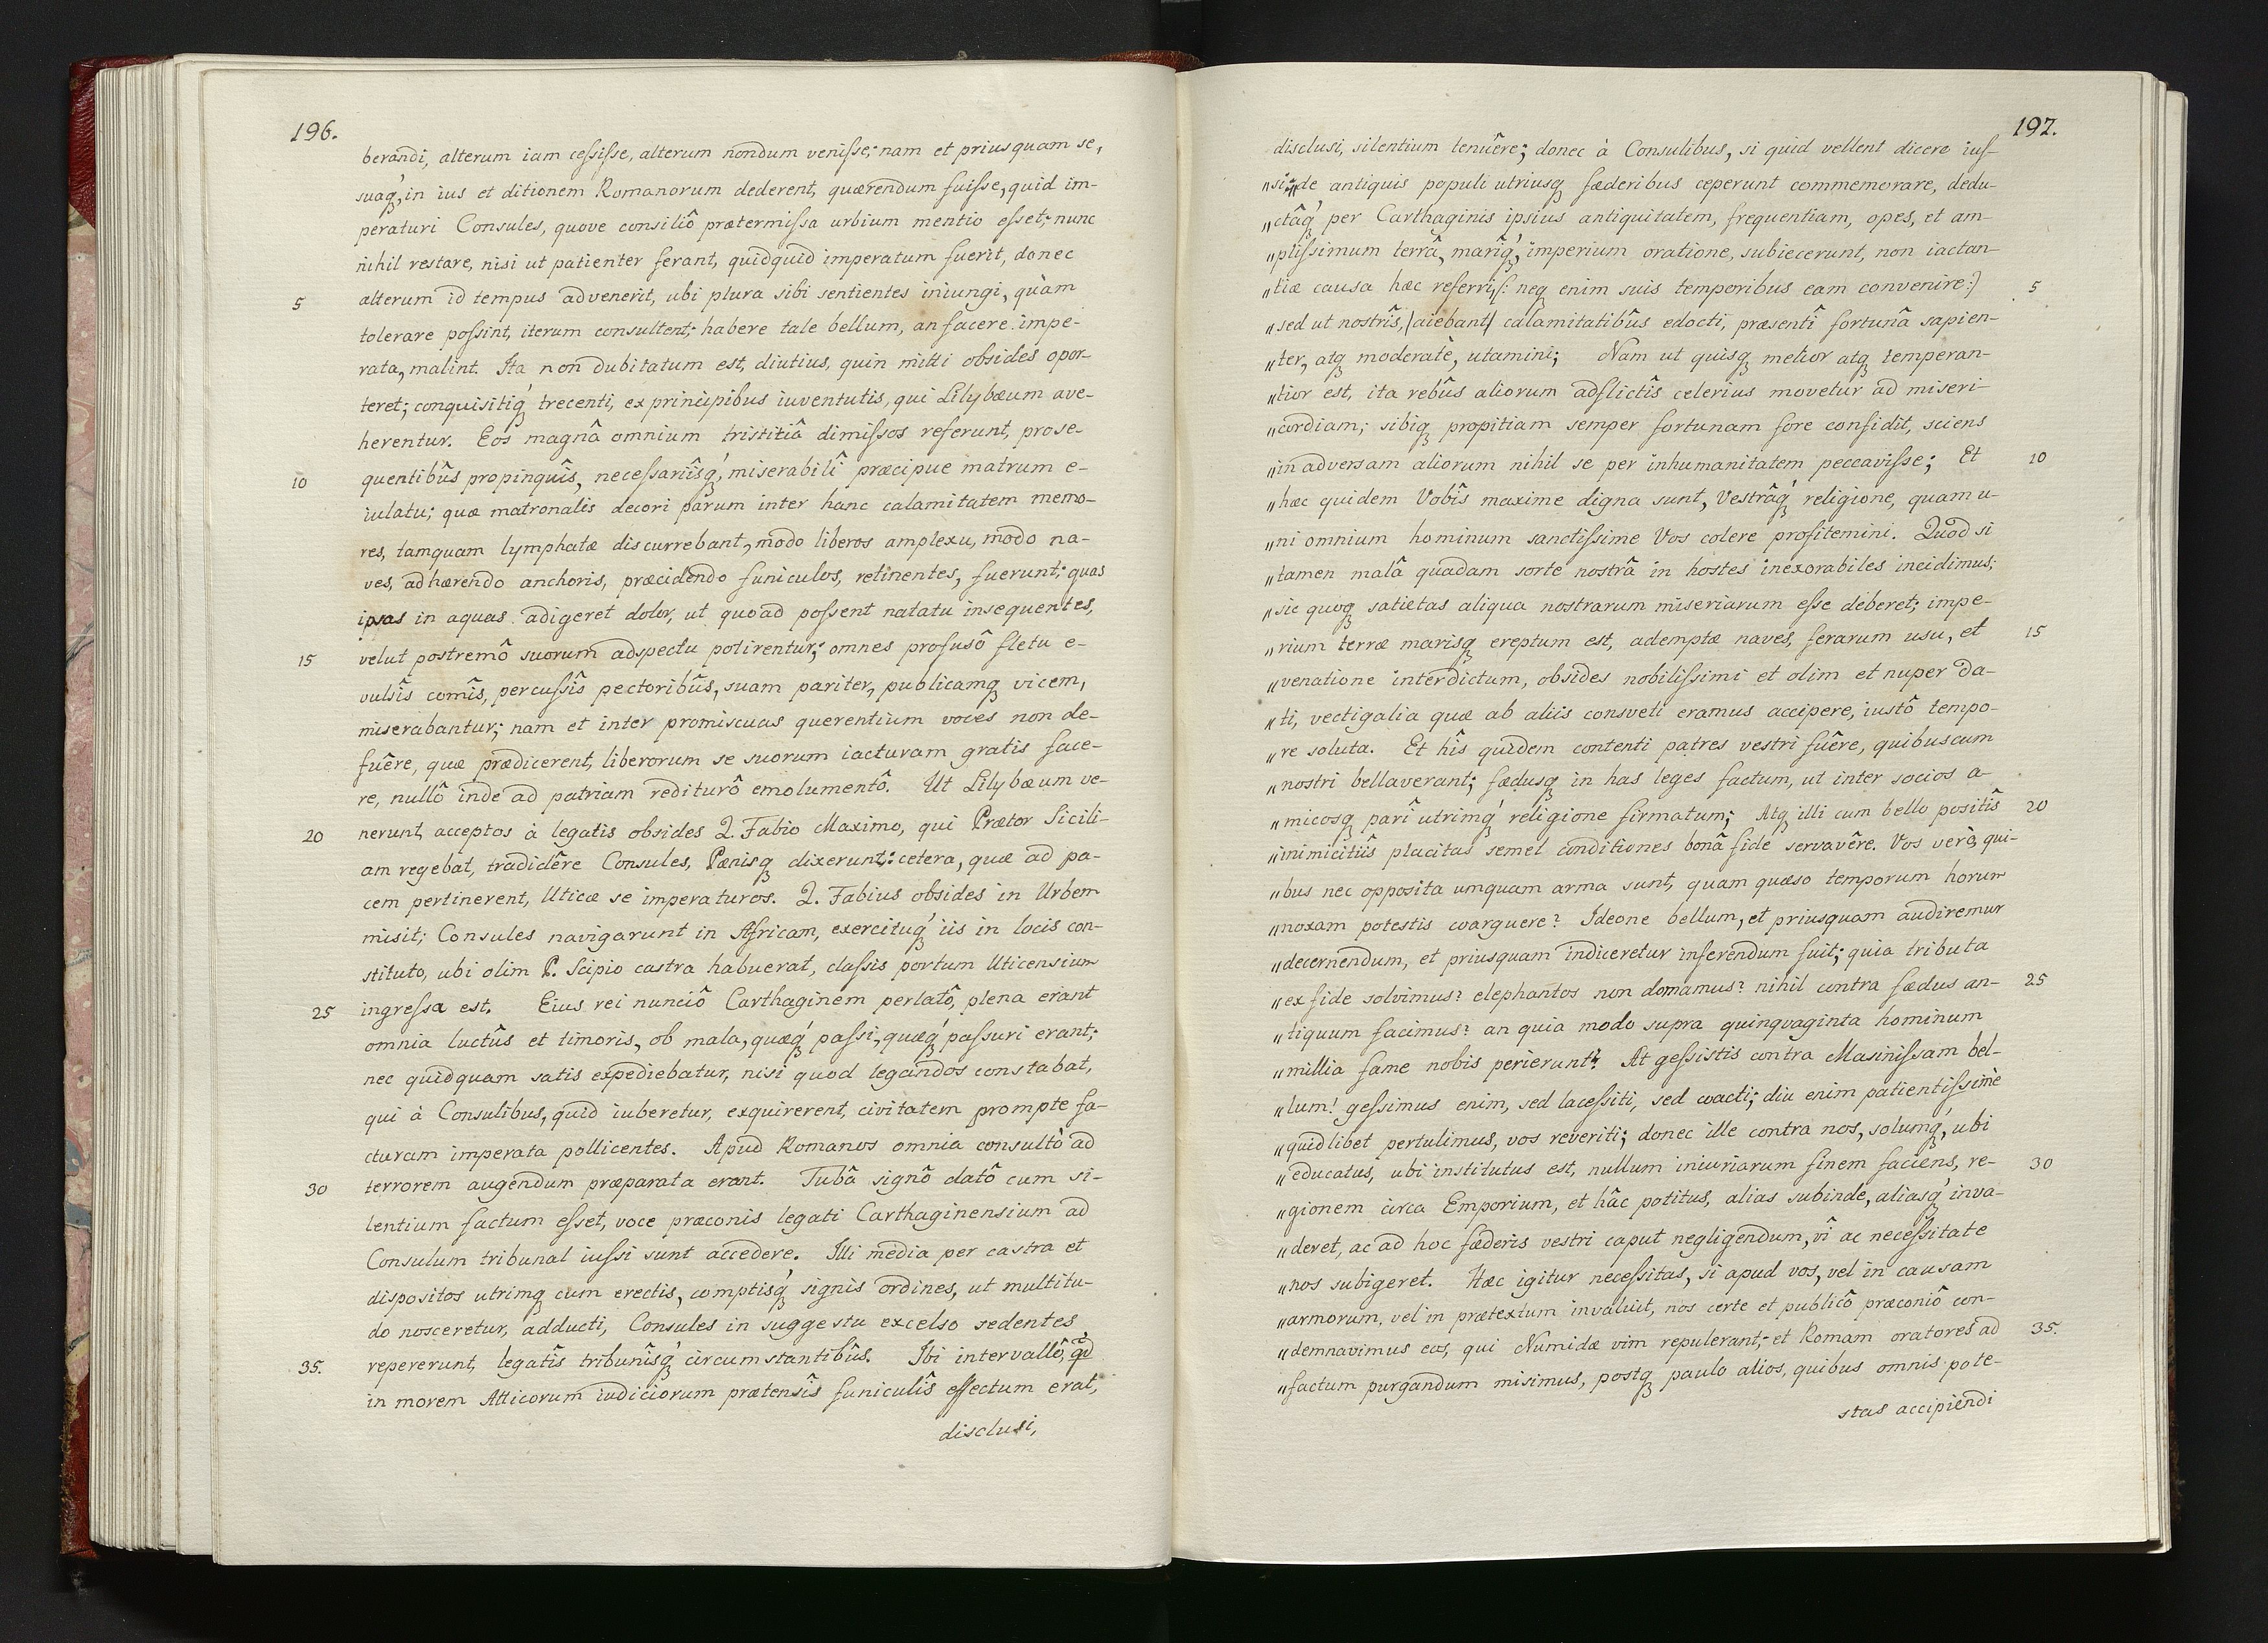 196.
berandi, alterum iam ceſsiſse, alterum nondum veniſse; nam et priusquam se,
suaq́ꝫ, in ius et ditionem Romanorum dederent, quærendum fuiſse, quid im-
peraturi Consules, quove consiliô prætermiſsa urbium mentio eſset; nunc
nihil restare, nisi ut patienter ferant, quidquid imperatum fuerit, donec
5 alterum id tempus advenerit, ubi plura sibi sentientes iniungi, quàm
tolerare poſsint, iterum consultent; habere tale bellum, an facere impe-
rata, malint. Ita non dubitatum est, diutius, quin mitti obsides opor-
teret; conquisitiq́ꝫ trecenti, ex principibus iuventutis, qui Lilybæum ave-
herentur. Eos magnâ omnium tristitiâ dimiſsos referunt, prose-
10 quentibûs propinquîs, neceſsariîsq́ꝫ, miserabilî præcipue matrum e-
iulatu; quæ matronalis decori parum inter hanc calamitatem memo-
res, tamquam lymphatæ discurrebant, modo liberos amplexu, modo na-
ves, adhærendo anchoris, præcidendo funiculos, retinentes, fuerunt; quas
ipsas in aquas adigeret dolor, ut quoad poſsent natatu insequentes,
15 velut postremô suorum adspectu potirentur; omnes profusô fletu e-
vulsîs comîs, percuſsîs pectoribûs, suam pariter, publicamqꝫ vicem,
miserabantur; nam et inter promiscuas querentium voces non de-
fuêre, quæ prædicerent, liberorum se suorum iacturam gratis face-
re, nullô inde ad patriam rediturô emolumentô. Ut Lilybæum ve-
20 nerunt, acceptos à legatis obsides Q. Fabio Maximo, qui Prætor Sicili-
am regebat, tradidêre Consules, Pænisqꝫ dixerunt: cetera, quæ ad pa-
cem pertinerent, Uticæ se imperaturos. Q. Fabius obsides in Urbem
misit; Consules navigarunt in Africam, exercituq́ꝫ iis in locis con-
stituto, ubi olim P. Scipio castra habuerat, claſsis portum Uticensium
25 ingreſsa est. Eius rei nunciô Carthaginem perlatô, plena erant
omnia luctûs et timoris, ob mala, quæq́ꝫ paſsi, quæq́ꝫ paſsuri erant;
nec quidquam satis expediebatur, nisi quod legandos constabat,
qui à Consulibus, quid iuberetur, exquirerent, civitatem prompte fa-
cturam imperata pollicentes. Apud Romanos omnia consultò ad
30 terrorem augendum præparata erant. Tubâ signô datô cum si-
lentium factum eſset, voce præconis legati Carthaginensium ad
Consulum tribunal iuſsi sunt accedere. Illi media per castra et
dispositos utrimqꝫ cum erectis, comptisq́ꝫ signis ordines, ut multitu-
do nosceretur, adducti, Consules in suggestu excelso sedentes
35. repererunt, legatîs tribunîsq́ꝫ circumstantibûs. Ibi intervallô, qd
in morem Atticorum iudiciorum prætensîs funiculîs effectum erat,
disclusi,
197.
disclusi, silentium tenuêre; donec à Consulibus, si quid vellent dicere iuſ-
„si, de antiquis populi utriusqꝫ fæderibus ceperunt commemorare, dedu-
„ctâq́ꝫ per Carthaginis ipsius antiquitatem, frequentiam, opes, et am-
„pliſsimum terrâ, marîq́ꝫ, imperium oratione, subiecerunt, non iactan-
„tiæ causa hæc referri /: neqꝫ enim suis temporibus eam convenire :/ 5
„sed ut nostrîs, /aiebant/ calamitatibûs edocti, præsentî fortunâ sapien-
„ter, atqꝫ moderatè, utamini; Nam ut quisqꝫ melior atqꝫ temperan-
„tior est, ita rebûs aliorum adflictîs celerius movetur ad miseri-
„cordiam; sibiqꝫ propitiam semper fortunam fore confidit, sciens
„in adversam aliorum nihil se per inhumanitatem peccaviſse; Et 10
„hæc quidem Vobîs maxime digna sunt, Vestrâq́ꝫ religione, quam u-
„ni omnium hominum sanctiſsime Vos colere profitemini. Quod si
„tamen malâ quadam sorte nostrâ in hostes inexorabiles incidimus;
„sic quoqꝫ satietas aliqua nostrarum miseriarum eſse deberet; impe-
„rium terræ marisqꝫ ereptum est, ademptæ naves, ferarum usu, et 15
„venatione interdictum, obsides nobiliſsimi et olim et nuper da-
„ti, vectigalia quæ ab aliis consveti eramus accipere, iustô tempo-
„re soluta. Et hîs quidem contenti patres vestri fuêre, quibuscum
„nostri bellaverant; fædusqꝫ in has leges factum, ut inter socios a-
„micosqꝫ parî utrimq́ꝫ religione firmatum; Atqꝫ illi cum bello positîs 20
„inimicitiîs placitas semel conditiones bonâ fide servavêre. Vos verò, qui-
„bus nec opposita umquam arma sunt, quam quæso temporum horum
„noxam potestis coarguere? Ideone bellum, et priusquam audiremur
„decernendum, et priusquam indiceretur inferendum fuit; quia tributa
„ex fide solvimus? elephantos non domamus? nihil contra fædus an- 25
„tiquum facimus? an quia modo supra quinqvaginta hominum
„millia fame nobis perierunt? At geſsistis contra Masiniſsam bel-
„lum! geſsimus enim, sed laceſsiti, sed coacti; diu enim patientiſsimè
„quidlibet pertulimus, vos reveriti; donec ille contra nos, solumq́ꝫ, ubi
„educatus, ubi institutus est, nullum iniuriarum finem faciens, re- 30
„gionem circa Emporium, et hâc potitus, alias subinde, aliasq́ꝫ inva-
„deret, ac ad hoc fæderis vestri caput negligendum, vî ac neceſsitate
„nos subigeret. Hæc igitur neceſsitas, si apud vos, vel in causam
„armorum, vel in prætextum invaluit, nos certe et publicô præconiô con-
„demnavimus eos, qui Numidæ vim repulerant; et Romam oratores ad 35.
„factum purgandum misimus, postqꝫ paulo alios, quibus omnis pote-
stas accipiendi